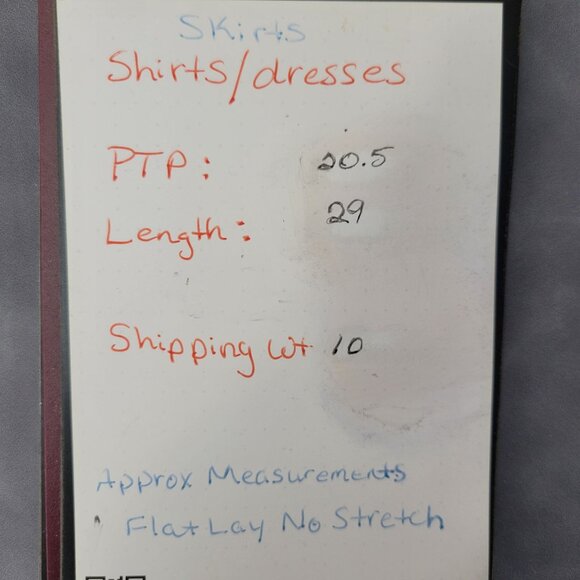 Skirts
Shirts/dresses
PTP: 20.5
Length: 29
Shipping Wt 10
Approx Measurements
Flat Lay No Stretch